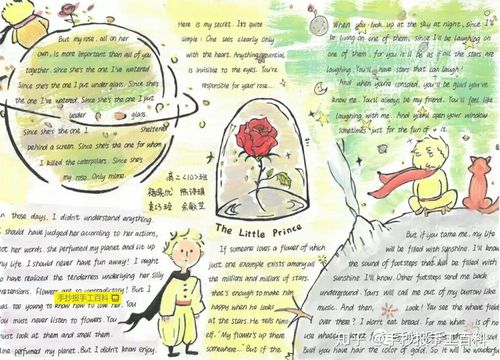 But my rose, all on her
own, is more important than all of you
together. Since she's the one I've watered.
Since she's the one I put under glass. Since she's
the one I've watered. Since she's the one I put
under glass.
Since she's the one I sheltered
behind a screen. Since she's the one for whom
I killed the caterpillars. Since she's
my rose. Only mine.
Here is my secret. It's quite
simple: One sees clearly only
with the heart. Anything essential
is invisible to the eyes. You're
responsible for your rose...
When you look up at the sky at night, since I'll
be living on one of them, since I'll be laughing on
one of them, for you it'll be as if all the stars are
laughing. You'll have stars that can laugh!
And when you're consoled, you'll be glad you've
know me. You'll always be my friend. You'll feel like
laughing with me. And you'll open your window
sometimes just for the fun of it.
高二<10>班
The Little Prince
In those days, I didn't understand anything.
I should have judged her according to her actions,
not her words. She perfumed my planet and lit up
my life. I should never have fun away! I ought
to have realized the tenderness underlying her silly
pretensions. Flowers are so contradictory! But I
was too young to know how to love her. You
must never listen to flowers. You
must look at them and smell them.
Mine perfumed my planet. But I didn't know enjoy.
If someone loves a flower of which
just one example exists among all
the millions and millions of stars,
that's enough to make him
happy when he looks
at the stars. He tells him
self, "My flower's up there
somewhere..." But if the
But if you tame me, my life
will be filled with sunshine. I'll know
the sound of footsteps that will be filled with
sunshine. I'll know. Other footsteps send me back
underground. Yours will call me out of my burrow like
music. And then, Look! You see the wheat field
over there? I don't eat bread. For me wheat is of no
use whatever
But you have hair the color of gold. So it
手抄报手工百科
知乎 @手抄报手工百科